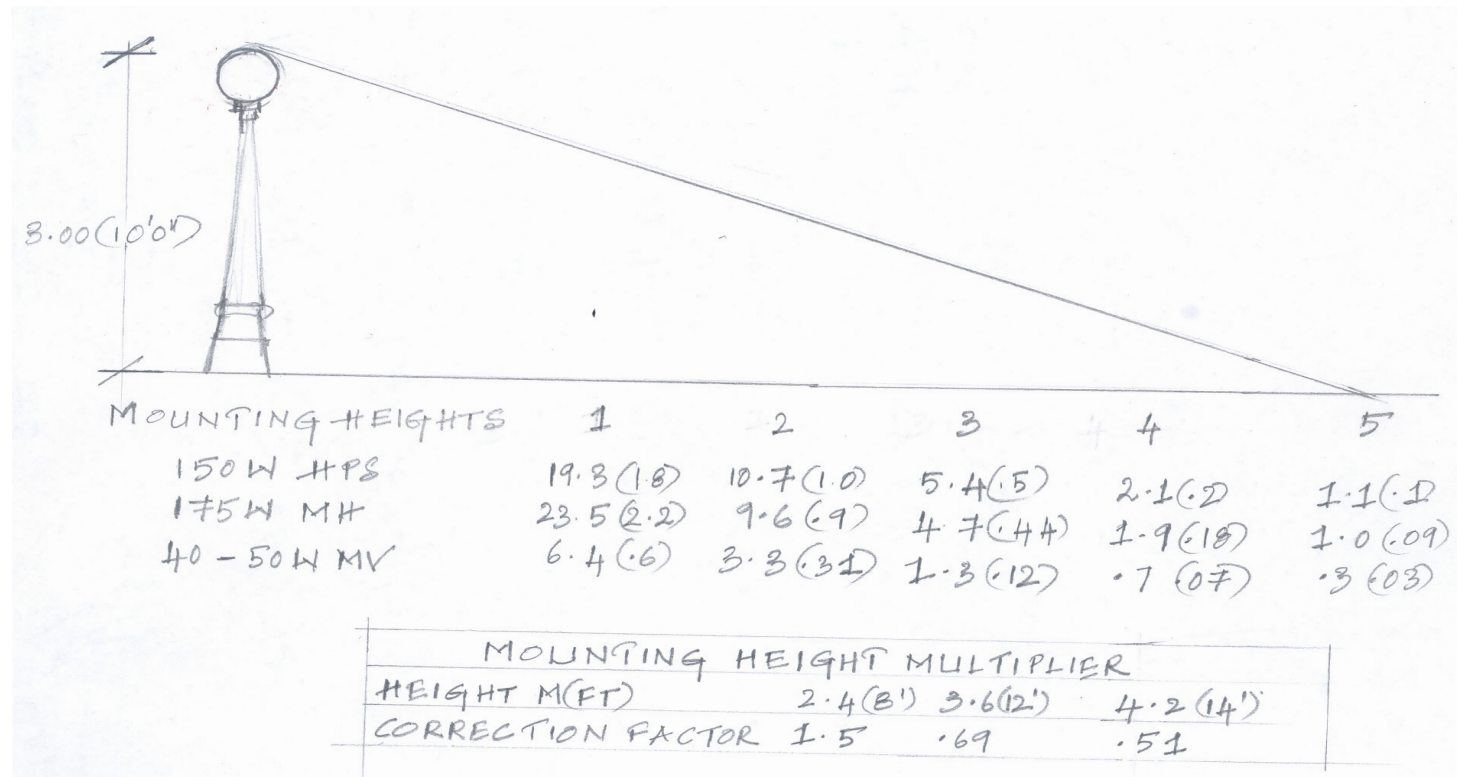 3.00(10'0")
MOUNTING HEIGHTS 1 2 3 4 5
150W HPS 19.3(1.8) 10.7(1.0) 5.4(.5) 2.1(.2) 1.1(.1)
175W MH 23.5(2.2) 9.6(.9) 4.7(.44) 1.9(.18) 1.0(.09)
40-50W MV 6.4(.6) 3.3(.31) 1.3(.12) .7(.07) .3(.03)
MOUNTING HEIGHT MULTIPLIER
HEIGHT M(FT) 2.4(8') 3.6(12') 4.2(14')
CORRECTION FACTOR 1.5 .69 .51